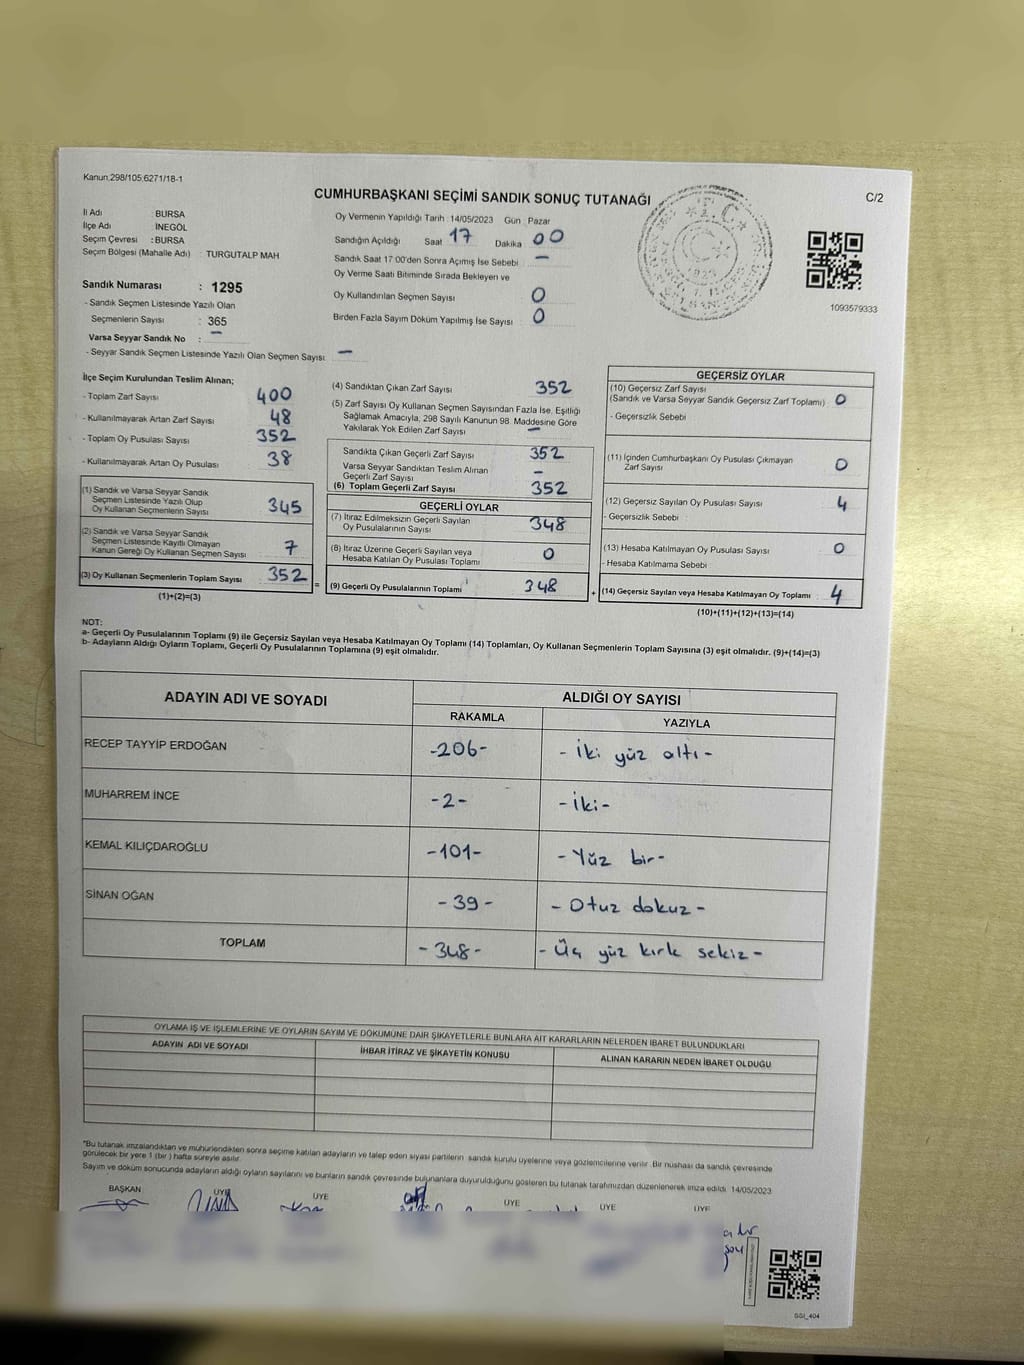 Kanun,298/105;6271/18-1
CUMHURBAŞKANI SEÇİMİ SANDIK SONUÇ TUTANAĞI
C/2
İli Adı : BURSA
İlçe Adı : İNEGÖL
Seçim Çevresi : BURSA
Seçim Bölgesi (Mahalle Adı) : TURGUTALP MAH
Sandık Numarası : 1295
- Sandık Seçmen Listesinde Yazılı Olan
Seçmenlerin Sayısı : 365
Varsa Seyyar Sandık No : –
- Seyyar Sandık Seçmen Listesinde Yazılı Olan Seçmen Sayısı : –
Oy Vermenin Yapıldığı Tarih : 14/05/2023 Gün : Pazar
Sandığın Açıldığı Saat 17 Dakika 00
Sandık Saat 17:00'den Sonra Açımış İse Sebebi –
Oy Verme Saati Bitiminde Sırada Bekleyen ve
Oy Kullandırılan Seçmen Sayısı 0
Birden Fazla Sayım Döküm Yapılmış İse Sayısı : 0
T.C.
1093579333
İlçe Seçim Kurulundan Teslim Alınan;
- Toplam Zarf Sayısı 400
- Kullanılmayarak Artan Zarf Sayısı 48
- Toplam Oy Pusulası Sayısı 352
- Kullanılmayarak Artan Oy Pusulası 38
(1) Sandık ve Varsa Seyyar Sandık
Seçmen Listesinde Yazılı Olup
Oy Kullanan Seçmenlerin Sayısı 345
(2) Sandık ve Varsa Seyyar Sandık
Seçmen Listesinde Kayıtlı Olmayan
Kanun Gereği Oy Kullanan Seçmen Sayısı 7
(3) Oy Kullanan Seçmenlerin Toplam Sayısı 352 =
(1)+(2)=(3)
(4) Sandıktan Çıkan Zarf Sayısı 352
(5) Zarf Sayısı Oy Kullanan Seçmen Sayısından Fazla İse, Eşitliği
Sağlamak Amacıyla, 298 Sayılı Kanunun 98. Maddesine Göre
Yakılarak Yok Edilen Zarf Sayısı –
Sandıkta Çıkan Geçerli Zarf Sayısı 352
Varsa Seyyar Sandıktan Teslim Alınan
Geçerli Zarf Sayısı –
(6) Toplam Geçerli Zarf Sayısı 352
GEÇERLİ OYLAR
(7) İtiraz Edilmeksizin Geçerli Sayılan
Oy Pusulalarının Sayısı 348
(8) İtiraz Üzerine Geçerli Sayılan veya
Hesaba Katılan Oy Pusulası Toplamı 0
(9) Geçerli Oy Pusulalarının Toplamı 348 +
GEÇERSİZ OYLAR
(10) Geçersiz Zarf Sayısı
(Sandık ve Varsa Seyyar Sandık Geçersiz Zarf Toplamı) 0
- Geçersizlik Sebebi
(11) İçinden Cumhurbaşkanı Oy Pusulası Çıkmayan
Zarf Sayısı 0
(12) Geçersiz Sayılan Oy Pusulası Sayısı 4
- Geçersizlik Sebebi
(13) Hesaba Katılmayan Oy Pusulası Sayısı 0
- Hesaba Katılmama Sebebi
(14) Geçersiz Sayılan veya Hesaba Katılmayan Oy Toplamı : 4
(10)+(11)+(12)+(13)=(14)
NOT:
a- Geçerli Oy Pusulalarının Toplamı (9) ile Geçersiz Sayılan veya Hesaba Katılmayan Oy Toplamı (14) Toplamları, Oy Kullanan Seçmenlerin Toplam Sayısına (3) eşit olmalıdır. (9)+(14)=(3)
b- Adayların Aldığı Oyların Toplamı, Geçerli Oy Pusulalarının Toplamına (9) eşit olmalıdır.
ADAYIN ADI VE SOYADI ALDIĞI OY SAYISI
RAKAMLA YAZIYLA
RECEP TAYYİP ERDOĞAN -206- - iki yüz altı -
MUHARREM İNCE -2- - iki -
KEMAL KILIÇDAROĞLU -101- - Yüz bir -
SİNAN OĞAN - 39 - - Otuz dokuz -
TOPLAM - 348 - - Üç yüz kırk sekiz -
OYLAMA İŞ VE İŞLEMLERİNE VE OYLARIN SAYIM VE DÖKÜMÜNE DAİR ŞİKAYETLERLE BUNLARA AİT KARARLARIN NELERDEN İBARET BULUNDUKLARI
ADAYIN ADI VE SOYADI İHBAR İTİRAZ VE ŞİKAYETİN KONUSU ALINAN KARARIN NEDEN İBARET OLDUĞU
"Bu tutanak imzalandıktan ve mühürlendikten sonra seçime katılan adayların ve talep eden siyasi partilerin sandık kurulu üyelerine veya gözlemcilerine verilir. Bir nüshası da sandık çevresinde
görülecek bir yere 1 (bir ) hafta süreyle asılır.
Sayım ve döküm sonucunda adayların aldığı oyların sayılarını ve bunların sandık çevresinde bulunanlara duyurulduğunu gösteren bu tutanak tarafımızdan düzenlenerek imza edildi. 14/05/2023
BAŞKAN ÜYE ÜYE ÜYE ÜYE ÜYE